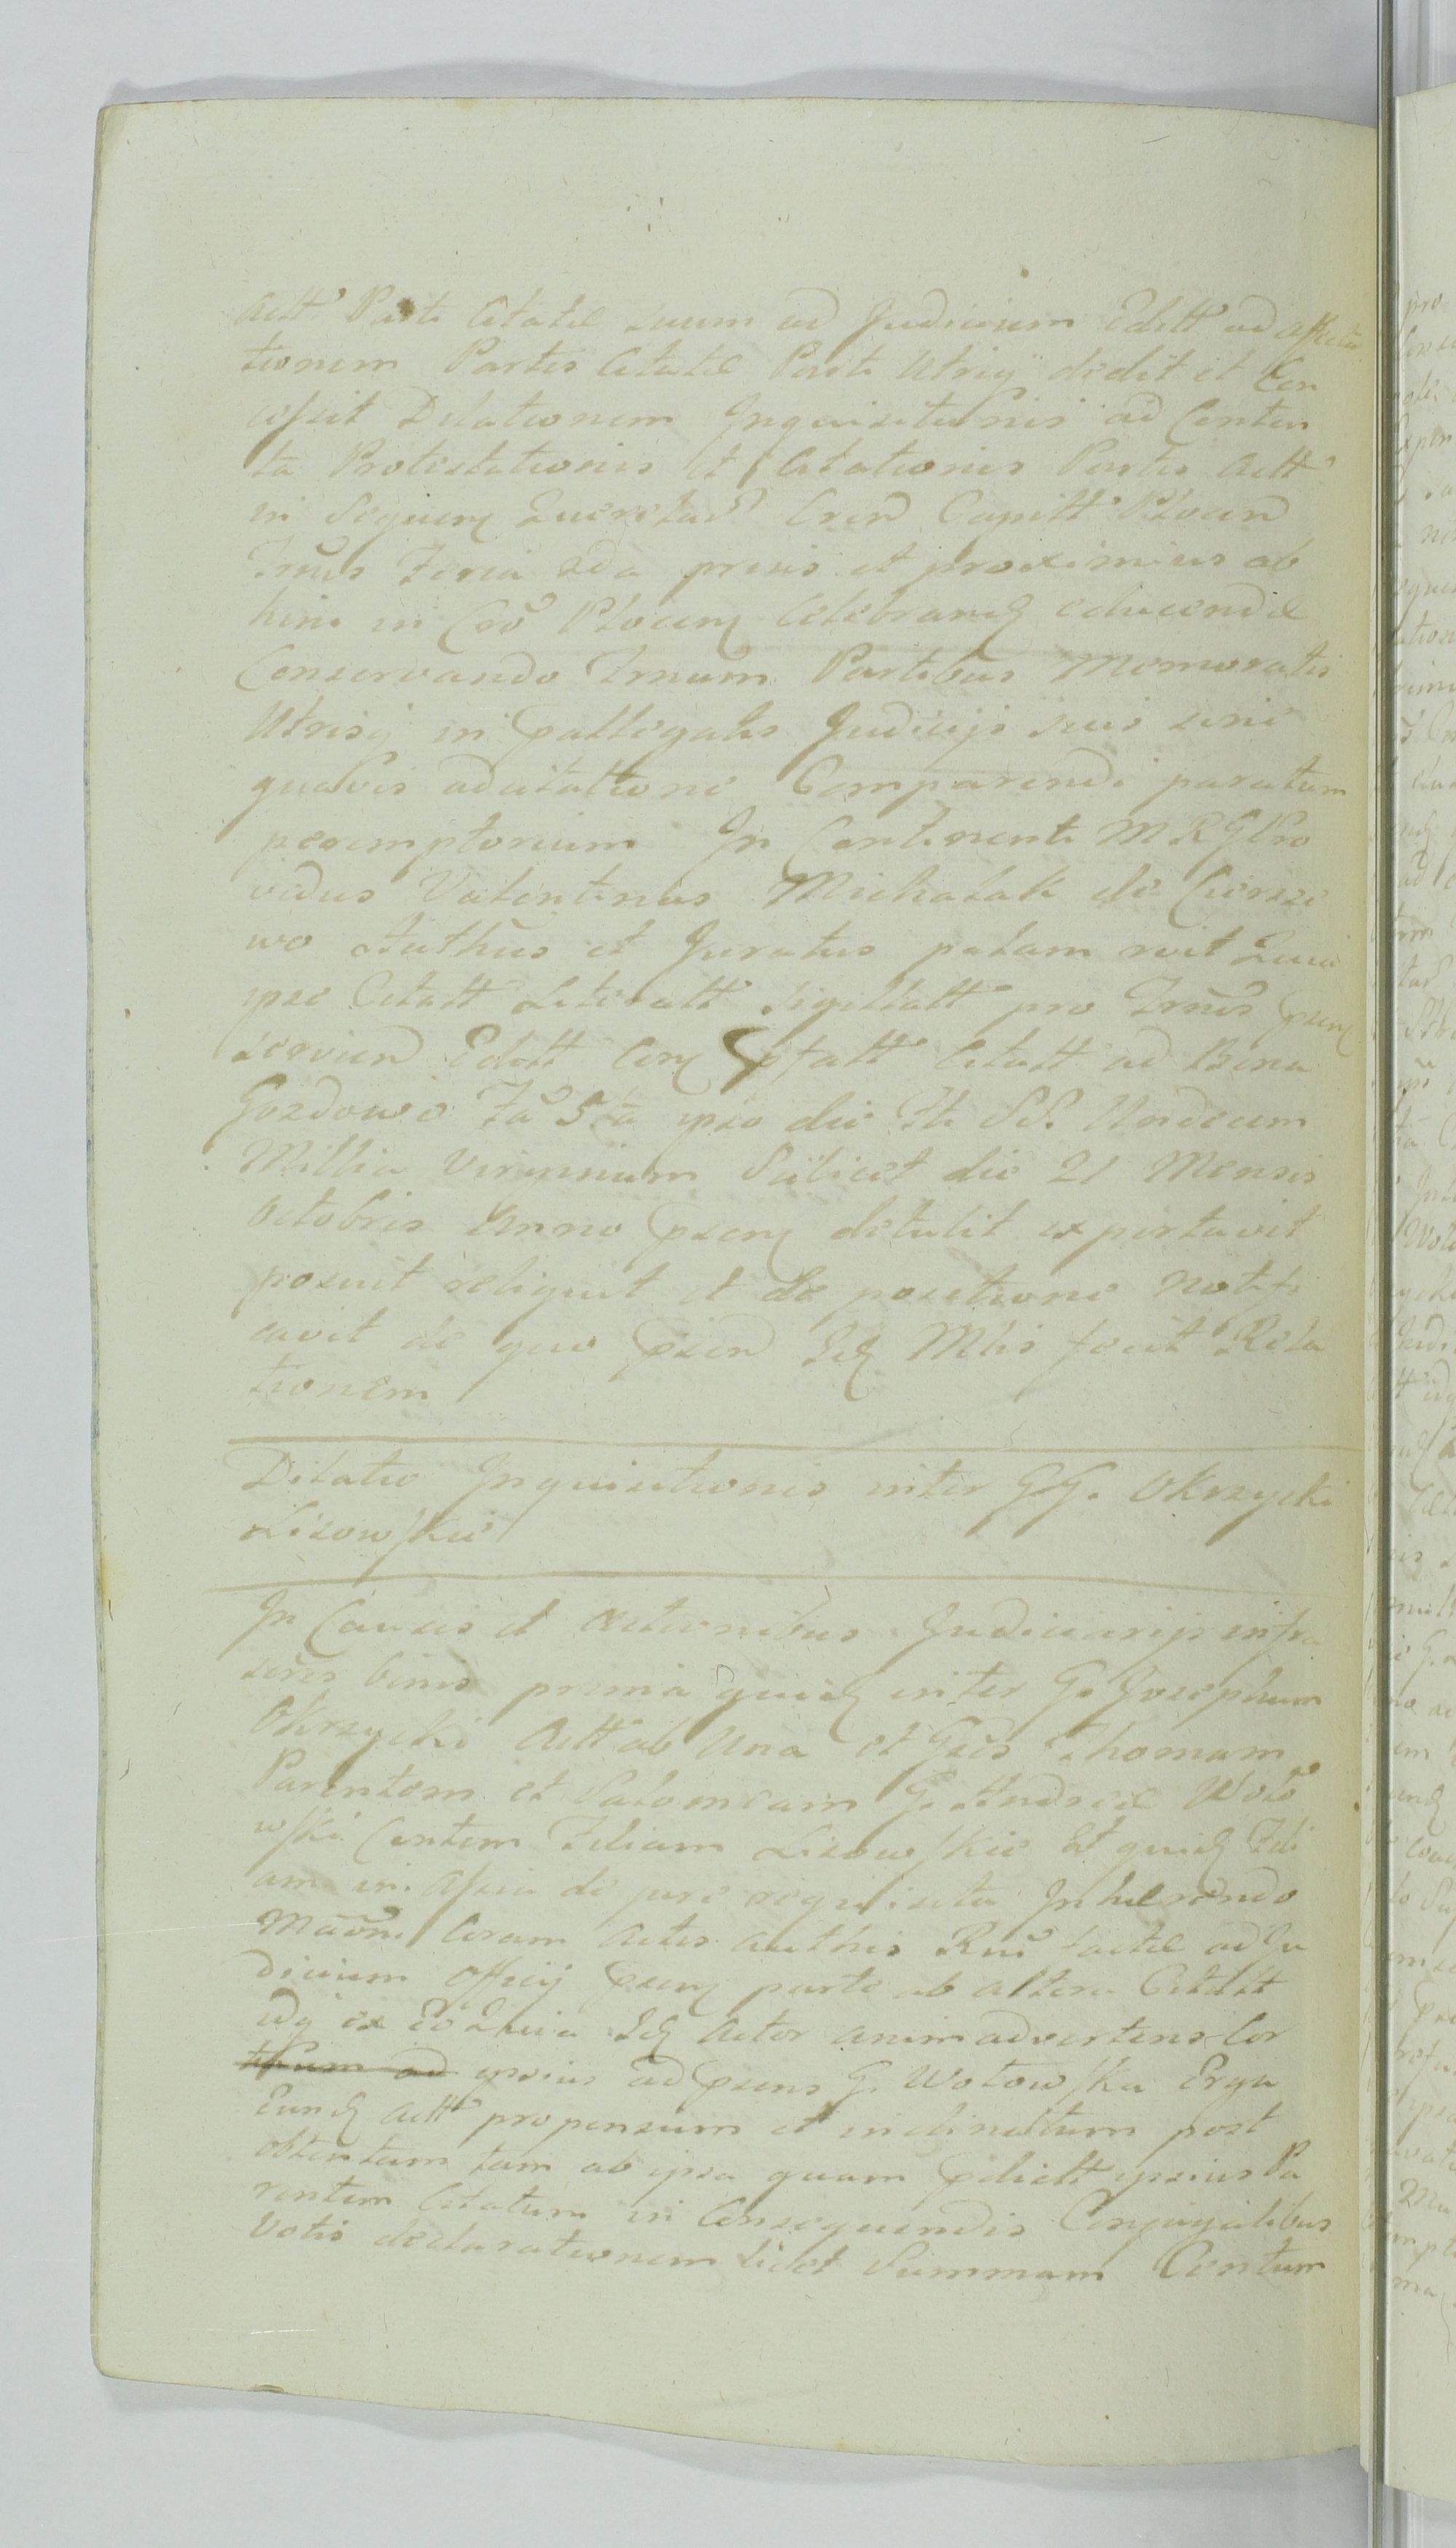 Actt Parti Citatae suum ad Judicium Editt ad affecta
tionem Partis Citatae Parti Utriq dedit et Con
cessit Dilationem Inquisitionis ad Conten
ta Protestationis et Citationis Partis Actt
in Sequen Querelar Cren Capitt Plocen
Trnis Feria 2da pmis et proximius ab
hinc in Cro Plocen Celebrand educendae
Conservando Trnum Partibus Memoratis
Utrisq in pallegatis Judicijs suis sine
quavis adcitatione Comparendi paratum
peremptorium In Continenti M R G Pro
vidus Valentinus Michalak de Ciersze
wo Authus et Juratus palam rcit Quia
ipse Citatt Literatt Sigillatt pro Trnis psen
servien Editt Cer ptatt Citatt ad Bona
Gozdowo Fa 5ta ipso die Fti SS. Undecim
Millia Virginum Scilicet die 21 Mensis
Octobris Anno psen detulit exportavit
posuit reliquit et de positione notifi
cavit de quo psen Idq Mlis fecit Rela
tionem
Dilatio Inquisitionis inter GG. Okrzycki
Lisowskie
In Causis et Actionibus Judiciarijs infra
scris binis prima quid inter G. Josephum
Okrzycki Actt ab Una et Gsos Thomam
Parentem et Salomeam G. Andreae Woło
wski Contem Filiam Lisowskie Et quid Fili
am in Assia de jure requisita Inhaerendo
Maoni Coram Actis authis Rni factae ad Ju
dicium Officij psen parte ab altera Citatt
idq ex Eo Quia Idq Actor animadvertens Cor
ipsius ad psens G. Wołowska Erga
Eund Actt propensum et inclinatum post
obtentam tam ab ipsa quam pdictt ipsius Pa
rentem Citatum in Consequendis Conjugalibus
Votis declarationem licet Summam Centum